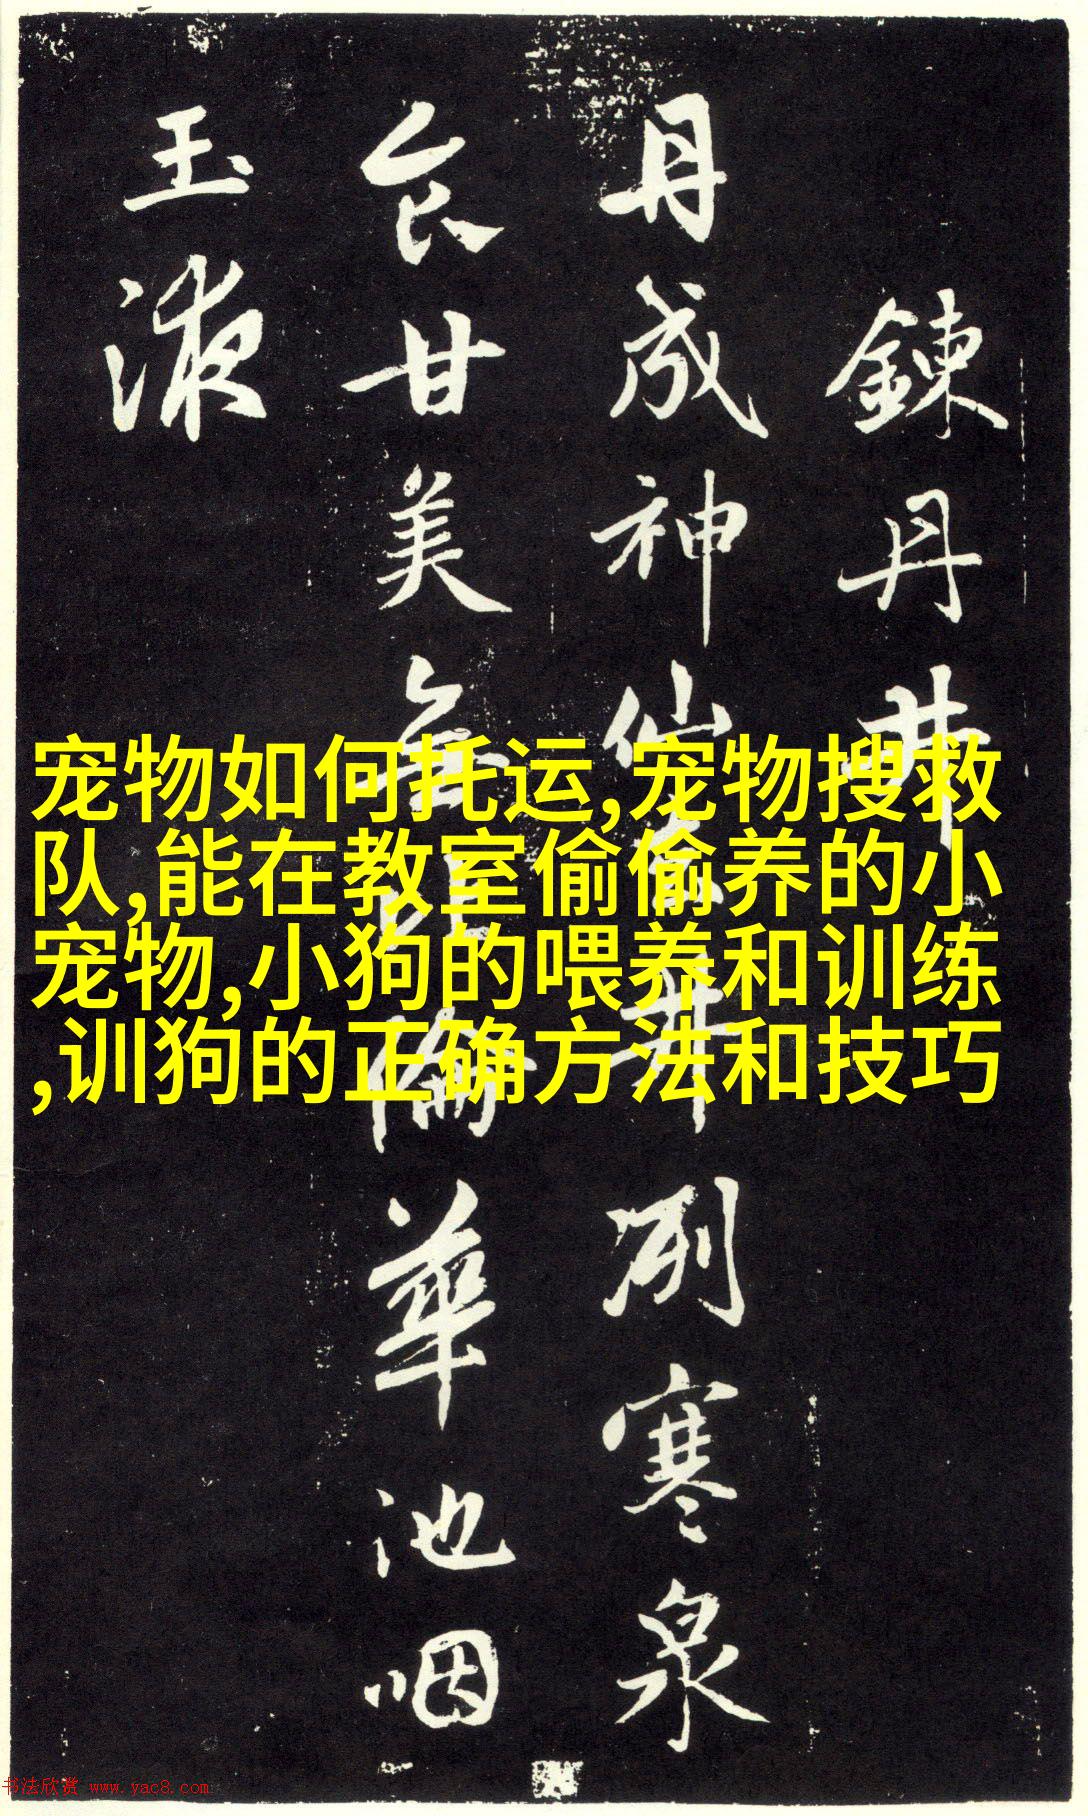 鍊丹井
丹成神仙井冽寒泉
食甘美無倫華池咽
玉液
宠物如何托运,宠物搜救
队,能在教室偷偷养的小
宠物,小狗的喂养和训练
,训狗的正确方法和技巧
书法欣赏 www.yac8.com